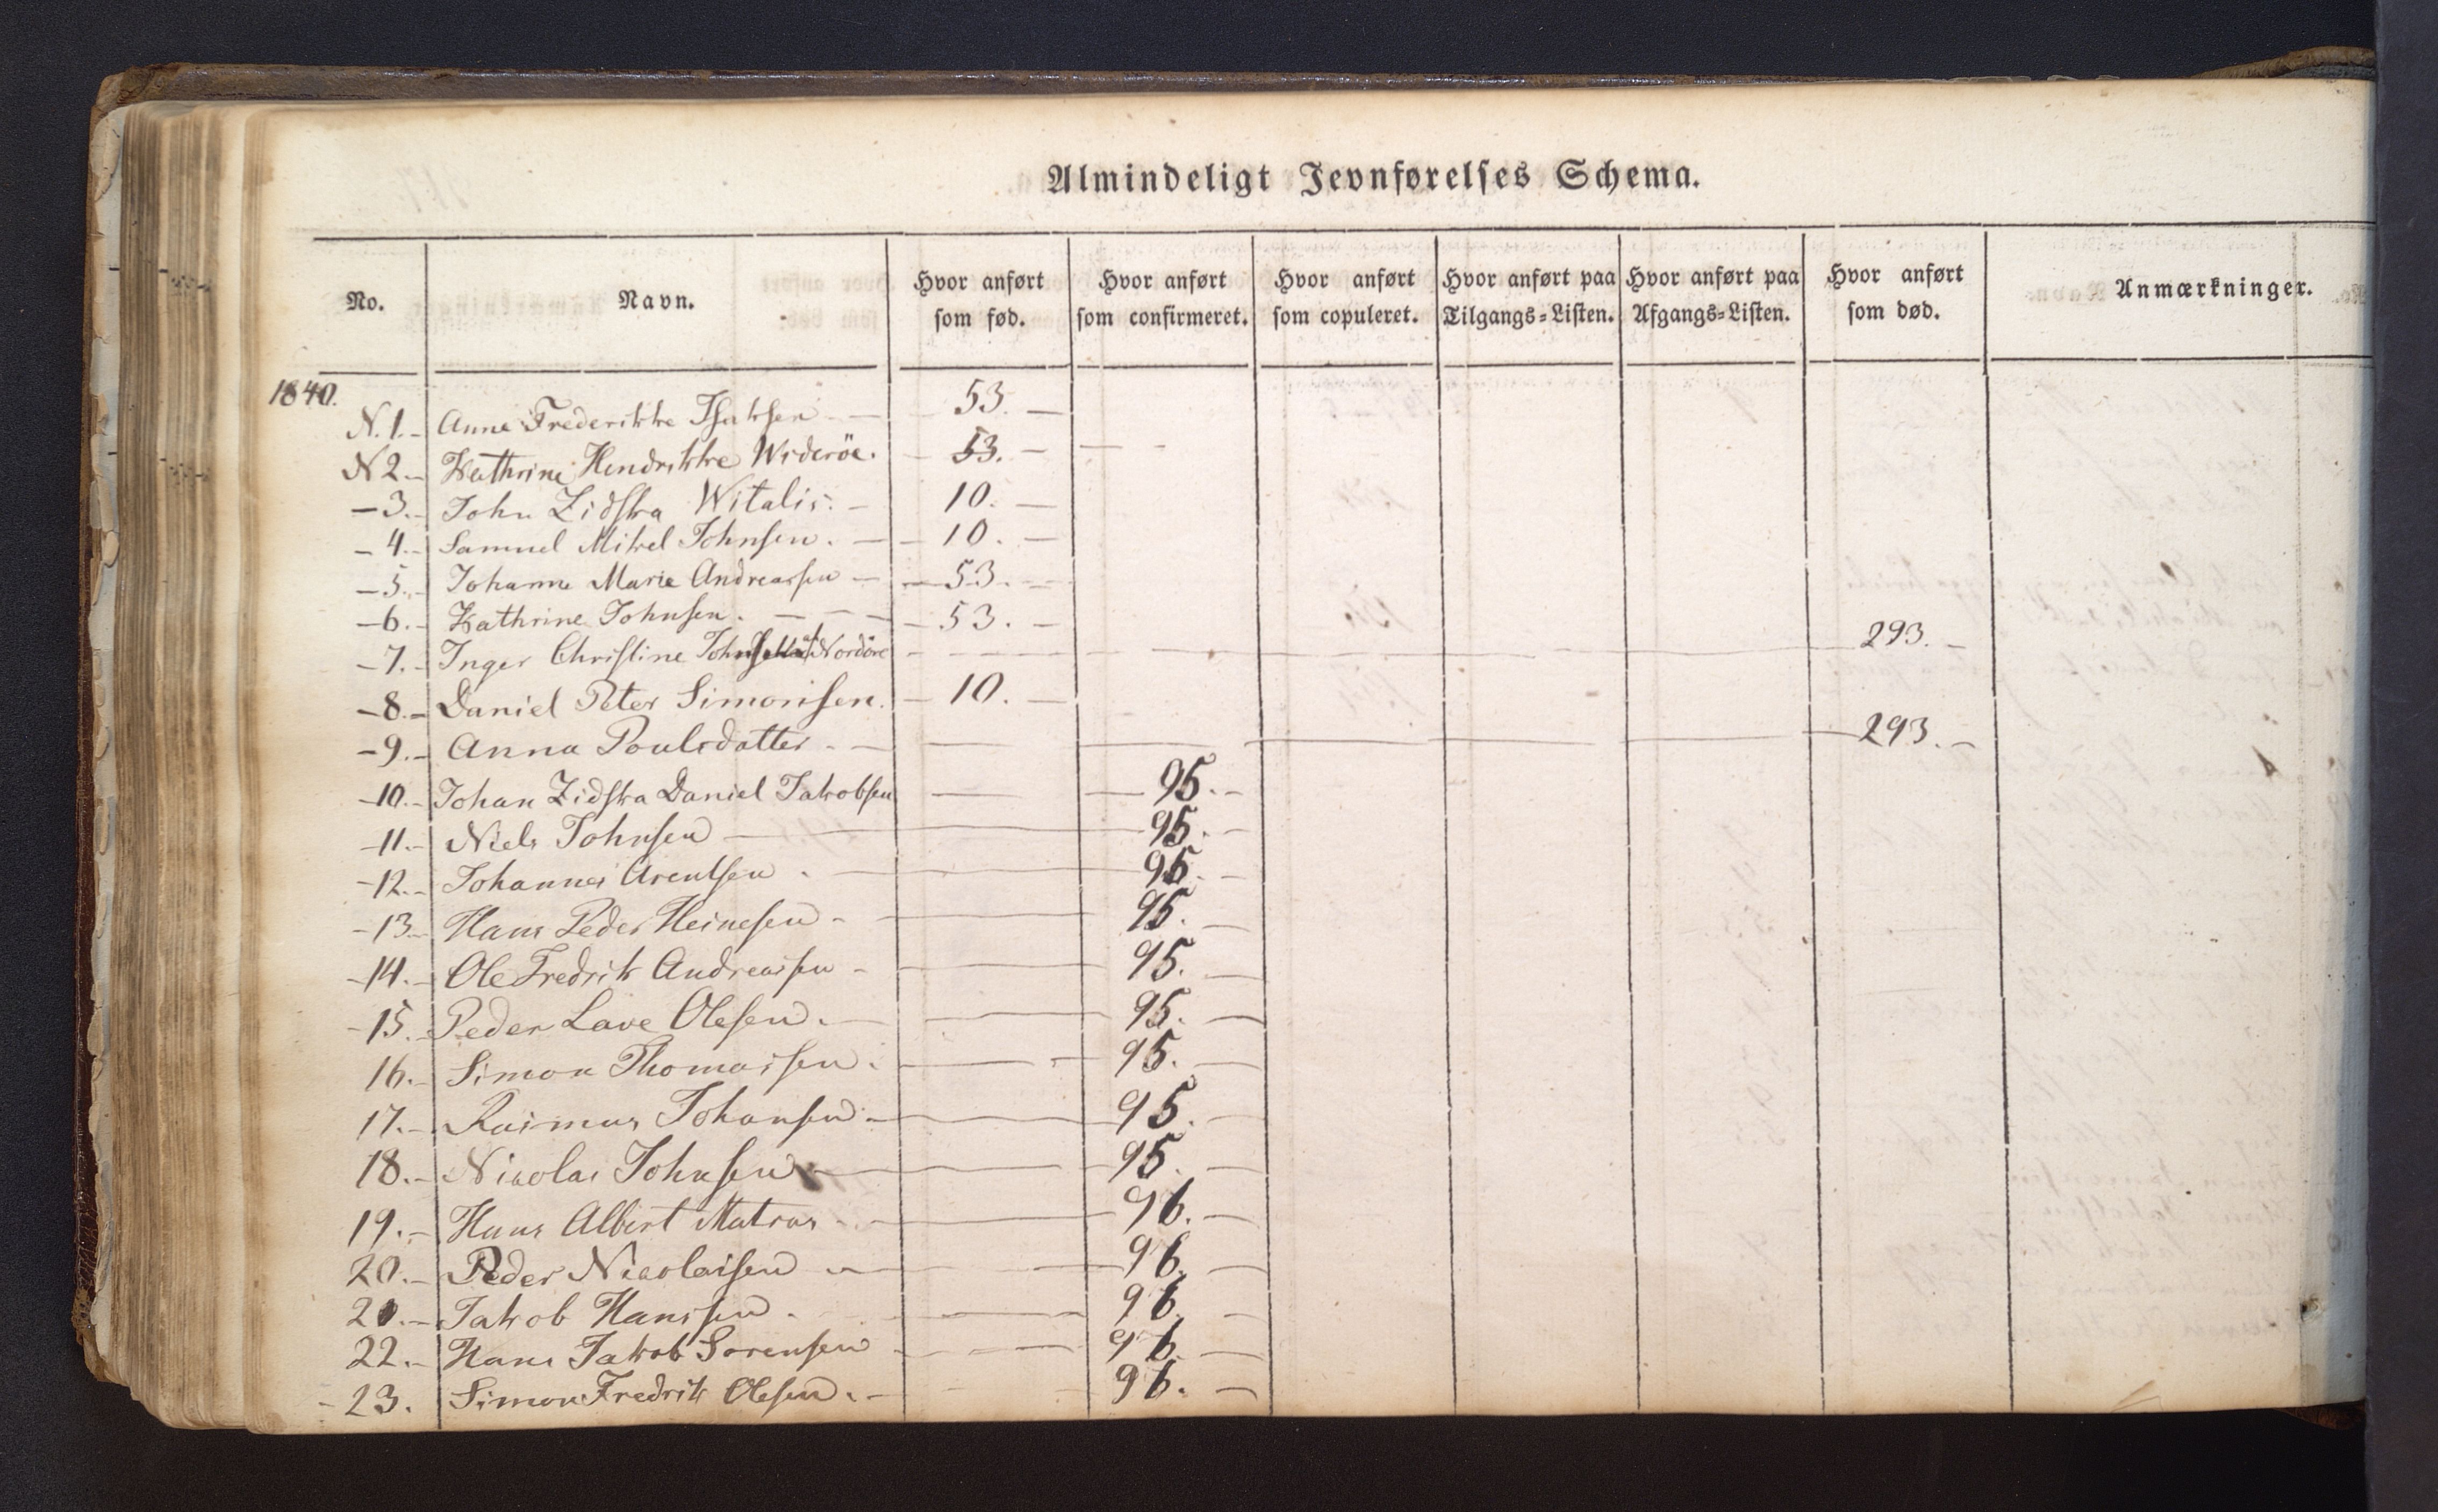 Almindeligt Jevnførelses Schema.
No. Navn. Hvor anført som fød. Hvor anført som confirmeret. Hvor anført som copuleret. Hvor anført paa Tilgangs=Listen. Hvor anført paa Afgangs=Listen. Hvor anført som død. Anmærkninger.
1840.
N. 1. - Anne Frederikke Isaksen - 53. -
N 2 - Kathrine Hendrikke Wideröe. - 53. -
- 3. - John Zidska Witalis. - 10. -
- 4. - Samuel Mikel Johnsen. - 10. -
- 5. - Johanne Marie Andreassen - 53. -
- 6. - Kathrine Johnsen. - 53. -
- 7. - Inger Christine Nordöre - 293. -
- 8. - Daniel Peter Simonsen. - 10. -
- 9. - Anna Poulsdatter - 293. -
- 10. - Johan Zidska Daniel Jakobsen - 95. -
- 11. - Niels Johnsen - 95. -
- 12. - Johannes Arentsen. - 95. -
- 13. - Hans Peder Heinesen - 95. -
- 14. - Ole Fredrik Andreassen - 95. -
- 15. - Peder Lave Olesen. - 95. -
16. - Simon Thomassen. - 95. -
17. - Rasmus Johansen - 95. -
18. - Nicolai Johnsen - 95. -
19. - Hans Albert Matras - 96. -
20. - Peder Nicolaisen - 96. -
21. - Jakob Hanssen. - 96. -
22. - Hans Jakob Sorensen - 96. -
- 23. Simon Fredrik Olesen. - 96. -